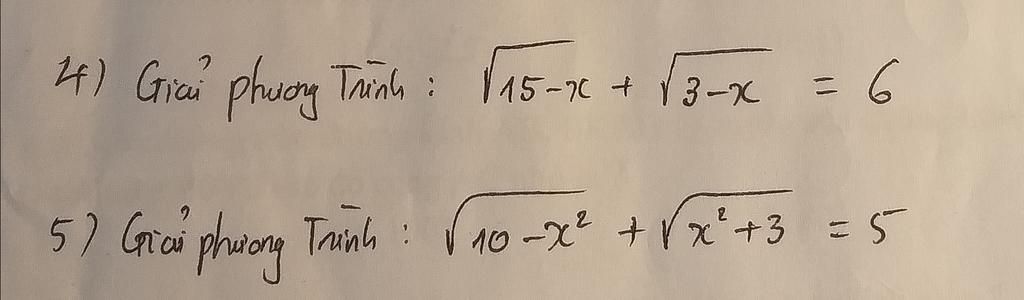 4) Giải phương Trình : √15-x + √3-x = 6
5) Giải phương Trình : √10-x² + √x²+3 = 5